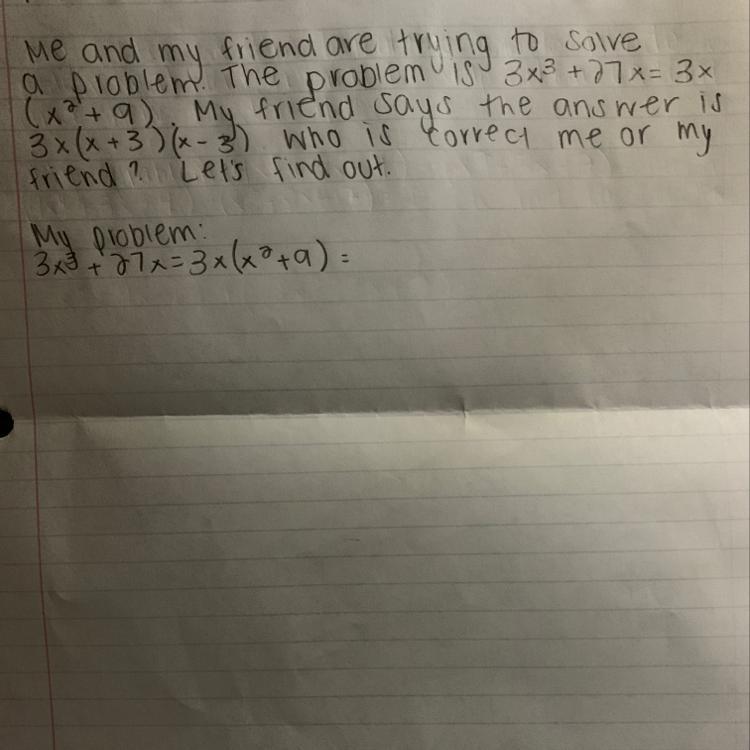 Me and my friend are trying to solve
a problem. The problem is 3x³ + 27x = 3x
(x² + 9). My friend says the answer is
3x(x + 3)(x - 3) who is correct me or my
friend? Let's find out.
My problem:
3x³ + 27x = 3x(x² + 9) =